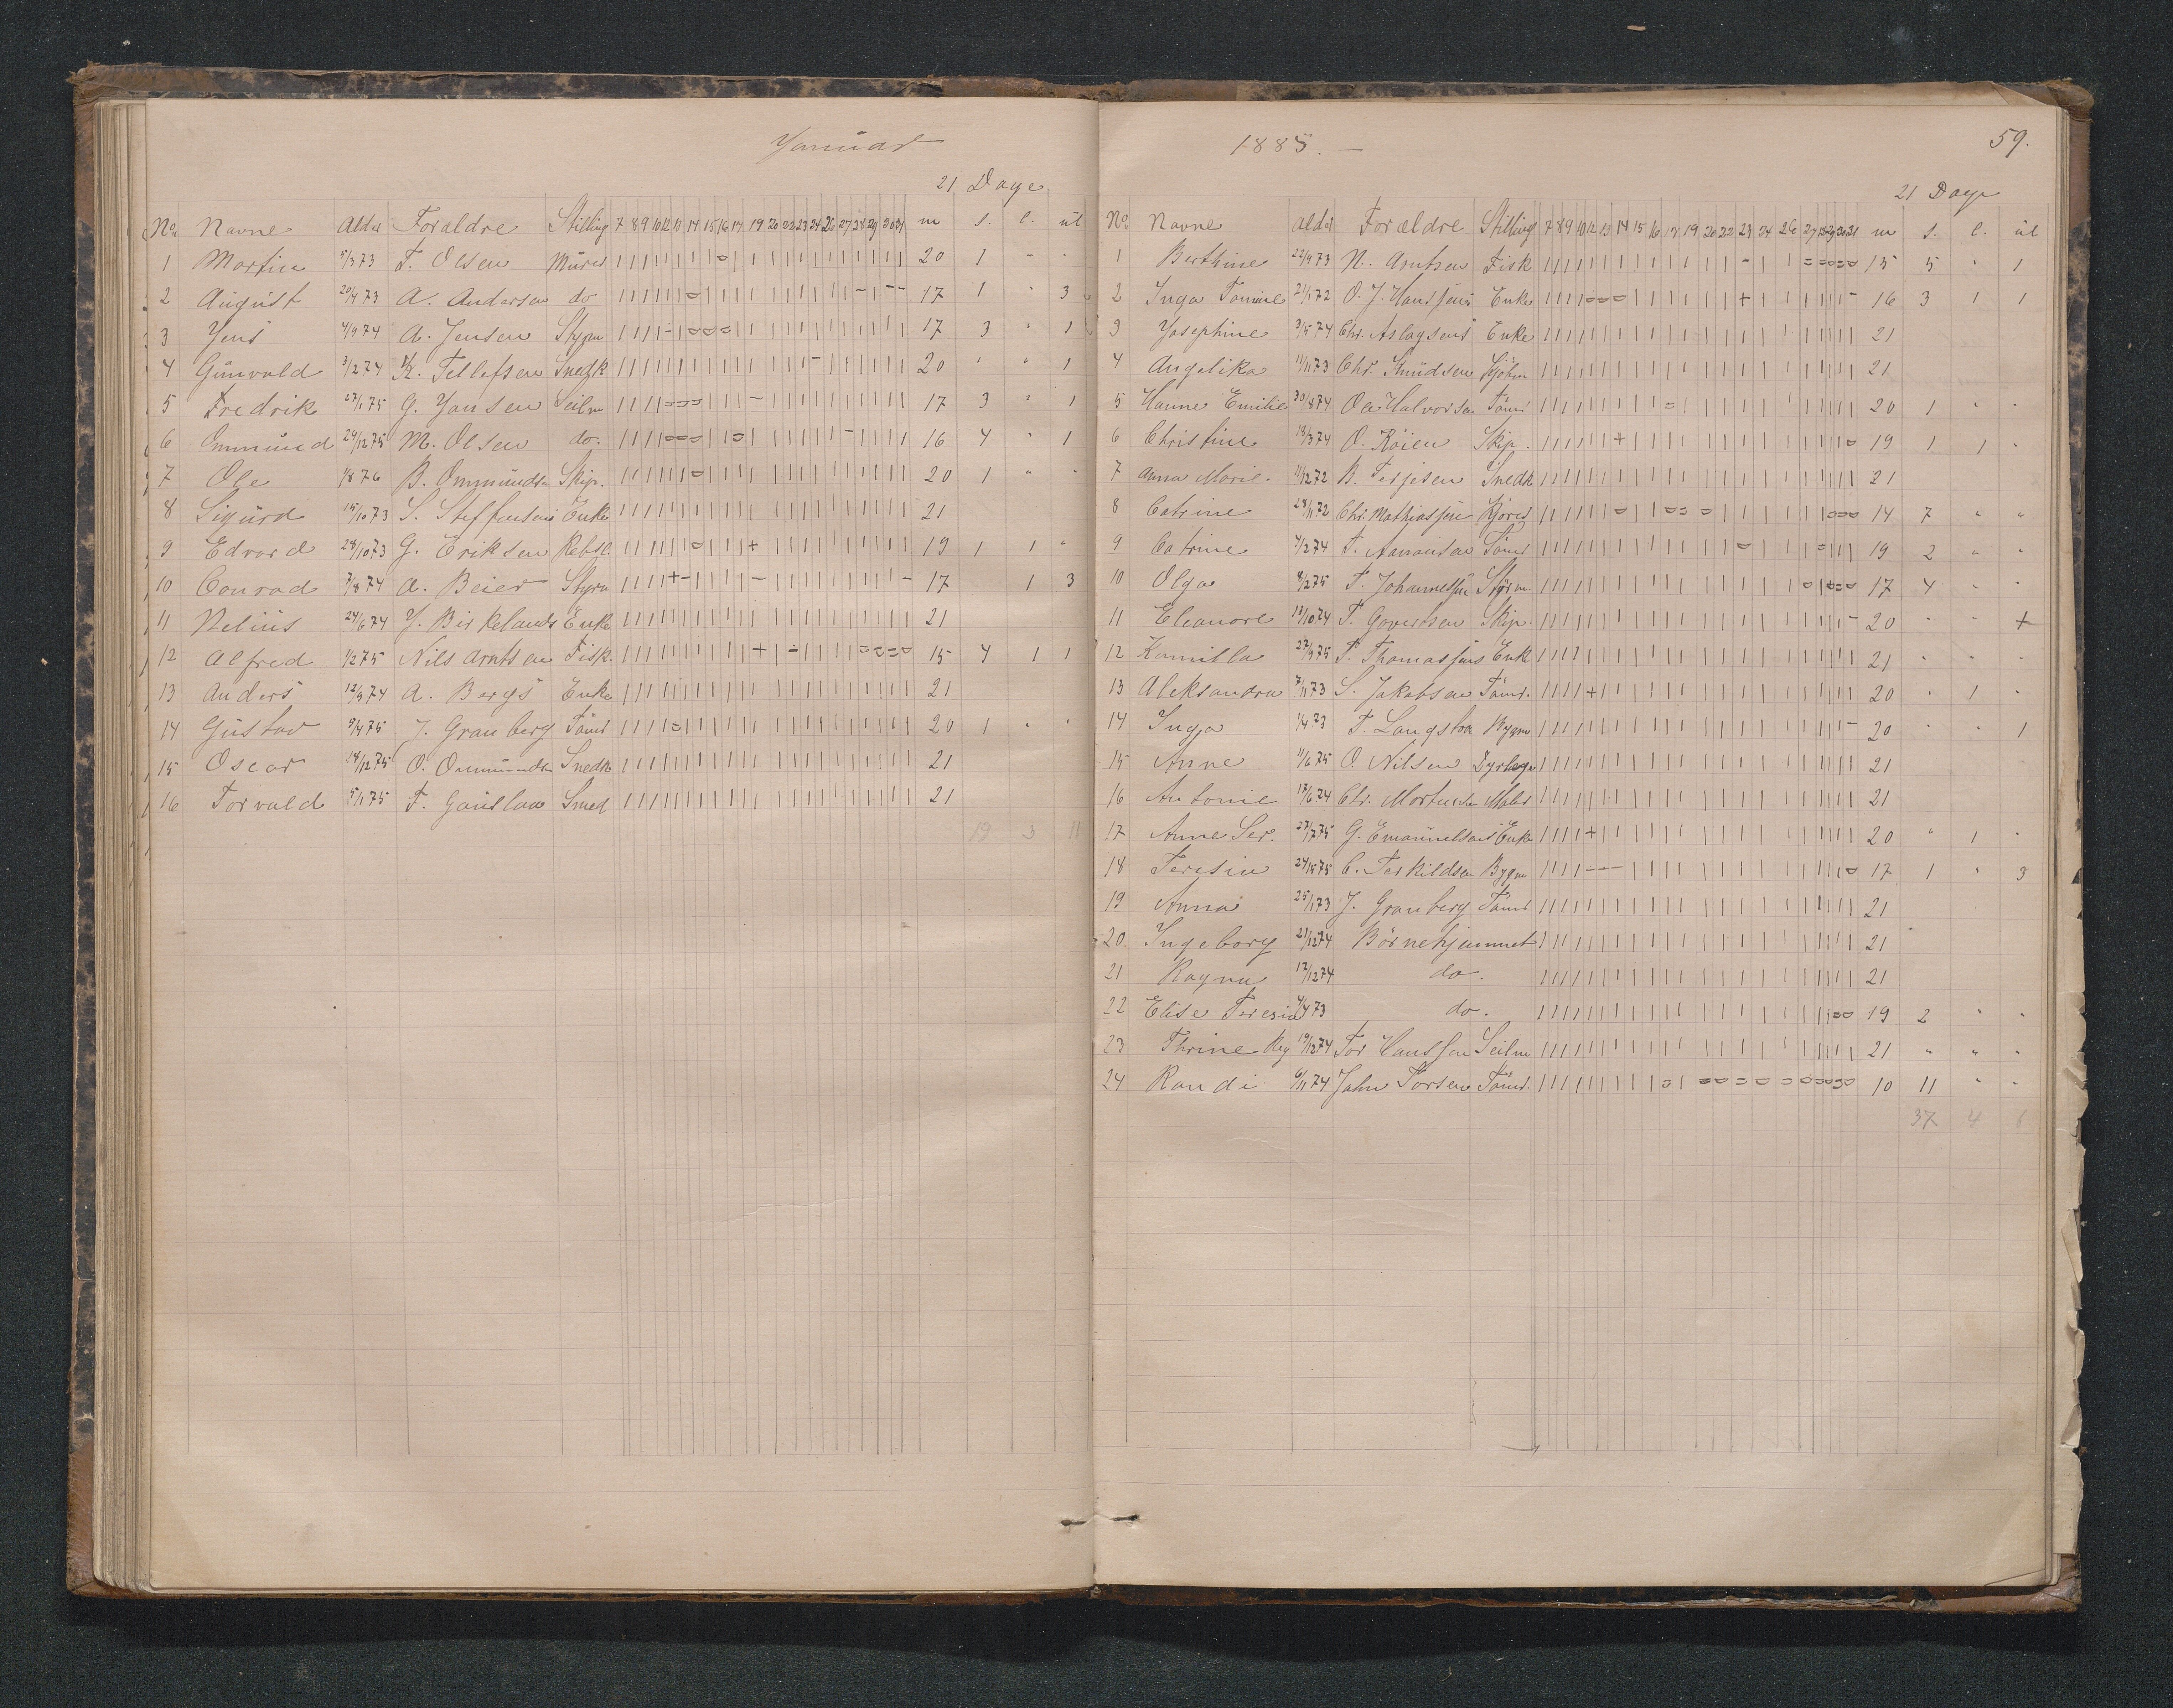 Januar
21 Dage
No. Navne Alder Foraldre Stilling 7 8 9 10 12 13 14 15 16 17 19 20 22 23 24 26 27 28 29 30 31 m s. l. ul
1 Martin 5/3 73 T. Olsen Murer | | | | | | | | | o | | | | | | | | | | | 20 1 " "
2 August 20/4 73 A. Andersen do 17 1 " 3
3 Jens 4/9 74 A. Jensen Stypm 17 3 " 1
4 Gunvald 3/2 74 K. Tellefsen Snedk 20 " " 1
5 Fredrik 27/1 75 G. Jansen Seilm 17 3 " 1
6 Ommund 29/12 75 M. Olsen do. 16 4 " 1
7 Ole 1/8 76 B. Ommundsn Skip. 20 1 " "
8 Sigurd 15/10 73 S. Steffensens Enke 21
9 Edvard 28/10 73 G. Eriksen Rebsl. 19 1 1 "
10 Conrad 7/8 74 A. Beier Styrm 17 1 3
11 Nelius 24/6 74 J. Birkelands Enke 21
12 Alfred 1/2 75 Nils Arntsen Fisk. 15 4 1 1
13 Anders 12/9 74 A. Bergs Enke 21
14 Gustav 5/4 75 J. Granberg Tömr 20 1 " "
15 Oscar 14/12 75 O. Ommundsn Snedk 21
16 Torvald 5/1 75 F. Gauslaa Smed 21
19 3 11
1885. —
59.
21 Dage
No. Navne Alder Forældre Stilling 7 8 9 10 12 13 14 15 16 17 19 20 22 23 24 26 27 28 29 30 31 m s. l. ul
1 Berthine 22/9 73 N. Arntsen Fisk 15 5 " 1
2 Inga Tomine 21/1 72 O. J. Hanssens Enke 16 3 1 1
3 Josephine 3/5 74 Chr. Aslagsens Enke 21
4 Angelika 11/11 73 Chr. Knudsen Sjöm 21
5 Hanne Emilie 30/8 74 Ole Halvorsen Tömr 20 1 " "
6 Christine 18/3 74 O. Röien Skip. 19 1 1 "
7 Anna Marie. 11/12 72 B. Terjesen Snedk 21
8 Catrine 28/11 72 Chr. Mathiassen Kjörer 14 7 " "
9 Catrine 4/2 74 T. Aanonsen Tömr 19 2 " "
10 Olga 8/2 75 T. Johannessen Styrm. 17 4 " "
11 Eleanore 13/10 74 T. Govertsen Skip. 20 " " +
12 Kamilla 27/9 75 T. Thomassens Enke 21 " " "
13 Aleksandra 7/11 73 S. Jakobsen Tömr. 20 " 1 "
14 Inga 1/4 73 T. Langstra Bygm 20 " " 1
15 Anne 11/6 75 O. Nilsen Dyrlæge 21
16 Antonie 17/6 74 Chr. Mortensen Maler 21
17 Anne Ser. 27/7 75 G. Emanuelsens Enke 20 " 1 "
18 Teresia C. Terkildsen Bygm 17 1 " 3
19 Anna 25/1 73 J. Granberg Tömr 21
20. Ingeborg 21/12 74 Börnehjemmet 21
21 Ragna 12/12 74 do. 21
22 Elise Teresia 4/4 73 do. 19 2 " "
23 Thrine Reg 19/12 74 Tor Hanssen Seilm 21 " " "
24 Randi 6/11 74 Jahn Torsen Tömr. 10 11 " "
37 4 6